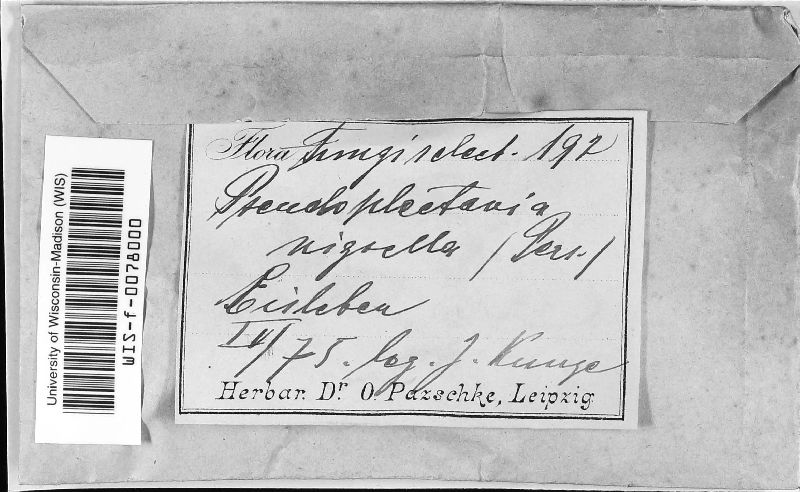 University of Wisconsin-Madison (WIS)
WIS-f-0078000
Flora Fungi select. 192
Pseudoplectania
nigrella (Pers.)
Eisleben
IV/75. leg. J. Kunze
Herbar. Dr. O. Pazschke, Leipzig.